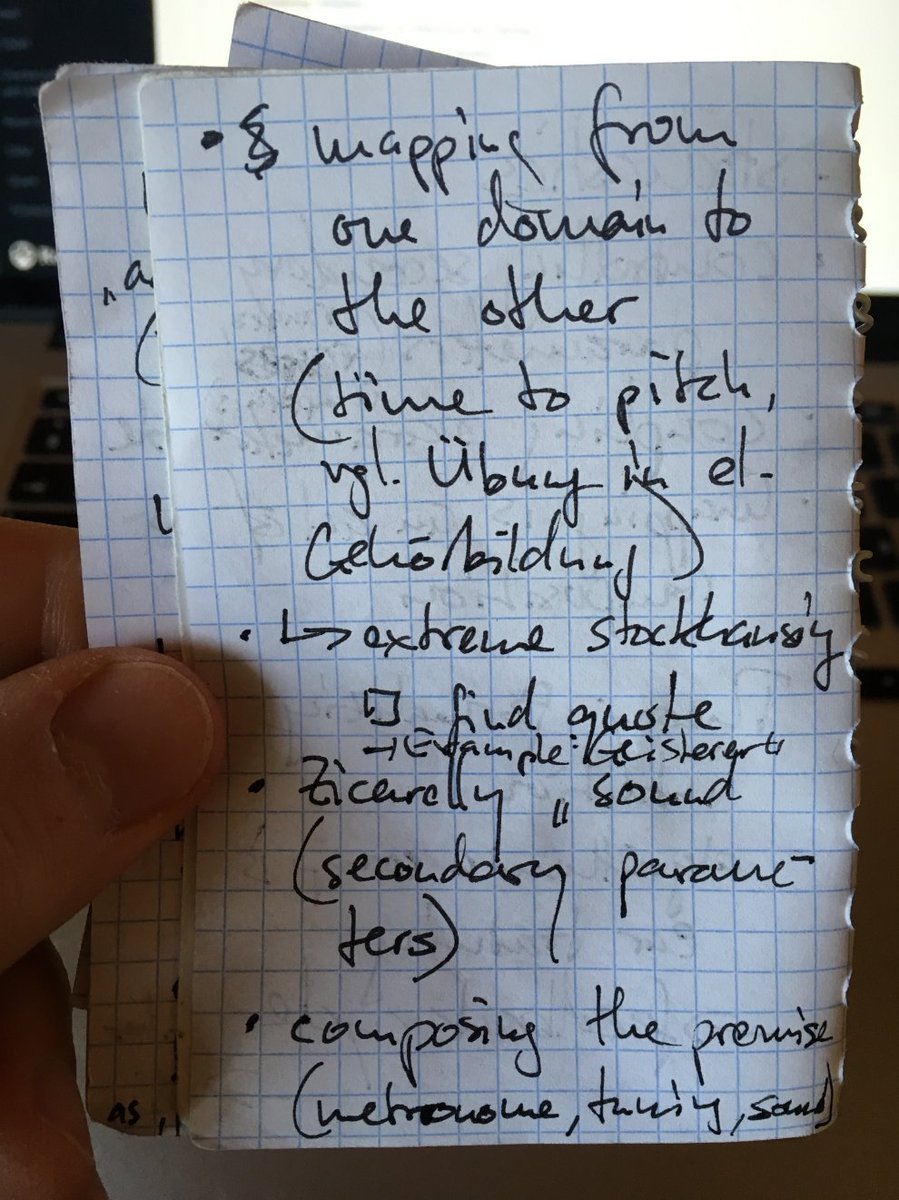 • § mapping from
one domain to
the other
(time to pitch,
vgl. Übung in el-
Gehörbildung)
• ↳ extreme stockhausig
☐ find quote
→ Example:
• Zicarelly „ sound
(secondary parame-
ters)
• composing the premise
(metronome, tuning, sound)
„a
(
as,